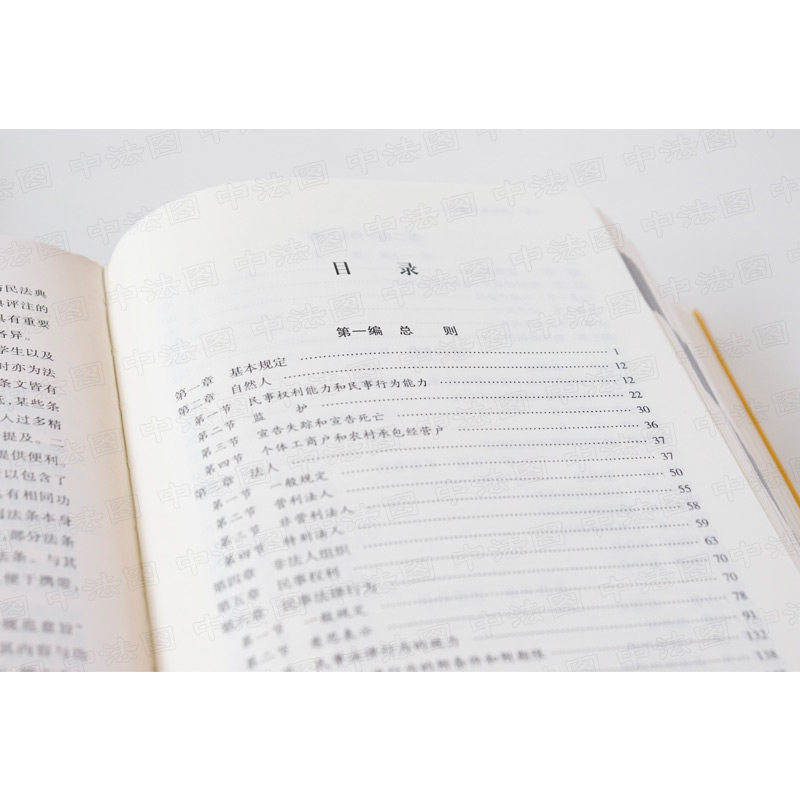 民法典
评注的
具有重要
各异。
学生以及
时亦为法
条文皆有
,某些条
人过多精
提及。二
提供便利。
以包含了
有相同功
法条本身
,部分法条
法条、与其
便于携带,
规范意旨"
其内容与指
目 录
第一编 总 则
第一章 基本规定 …… 1
第二章 自然人 …… 12
第一节 民事权利能力和民事行为能力 …… 12
第二节 监 护 …… 22
第三节 宣告失踪和宣告死亡 …… 30
第四节 个体工商户和农村承包经营户 …… 36
第三章 法人 …… 37
第一节 一般规定 …… 37
第二节 营利法人 …… 50
第三节 非营利法人 …… 55
第四节 特别法人 …… 58
第四章 非法人组织 …… 59
第五章 民事权利 …… 63
第六章 民事法律行为 …… 70
第一节 一般规定 …… 70
第二节 意思表示 …… 78
民事法律行为的效力 …… 91
附条件和附期限 …… 132
138
中法图